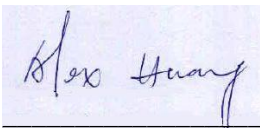 Alex Huang